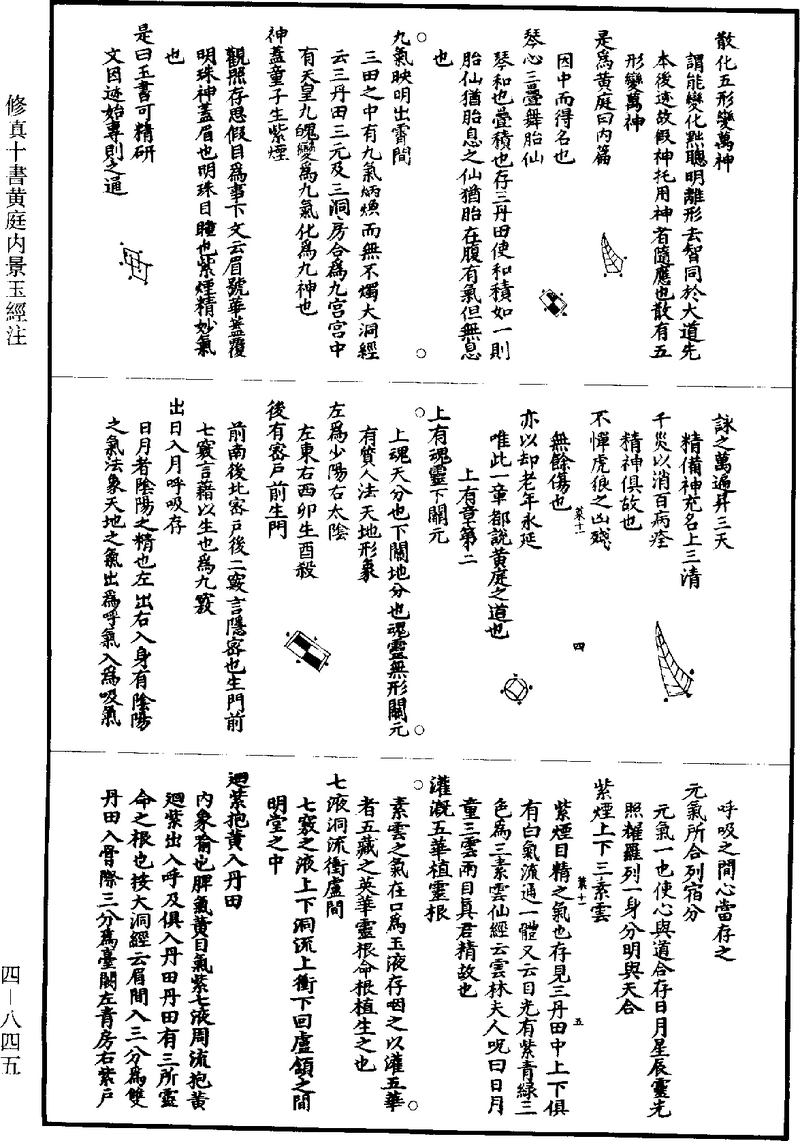 修真十書黃庭內景玉經注
四—八四五
散化五形變萬神
謂能變化黜聰明離形去智同於大道先
本後迹故假神托用神者隨應也散有五
形變萬神
是爲黃庭曰內篇
因中而得名也
琴心三疊舞胎仙
琴和也疊積也存三丹田使和積如一則
胎仙猶胎息之仙猶胎在腹有氣但無息
也
九氣映明出霄間
三田之中有九氣炳煥而無不燭大洞經
云三丹田三元及三洞房合爲九宮宮中
有天皇九魄變爲九氣化爲九神也
神蓋童子生紫煙
觀照存思假目爲事下文云眉號華蓋覆
明珠神蓋眉也明珠目瞳也紫煙精妙氣
也
是曰玉書可精研
文因迹始專則之通
詠之萬遍昇三天
精備神充名上三清
千災以消百病痊
精神俱故也
不憚虎狼之凶殘
無餘傷也
菜十一
四
亦以却老年永延
唯此一章都說黃庭之道也
上有章第二
上有魂靈下關元
上魂天分也下關地分也魂靈無形關元
有質人法天地形象
左爲少陽右太陰
左東右西卯生酉殺
後有密戶前生門
前南後北密戶後二竅言隱密也生門前
七竅言藉以生也爲九竅
出日入月呼吸存
日月者陰陽之精也左出右入身有陰陽
之氣法象天地之氣出爲呼氣入爲吸氣
呼吸之間心當存之
元氣所合列宿分
元氣一也使心與道合存日月星辰靈光
照耀羅列一身分明與天合
紫煙上下三素雲
紫煙目精之氣也存見三丹田中上下俱
菜十一
五
有白氣流通一體又云目光有紫青綠三
色爲三素雲仙經云雲林夫人呪曰日月
童三雲兩目真君精故也
灌溉五華植靈根
素雲之氣在口爲玉液存咽之以灌五華
者五藏之英華靈根命根植生之也
七液洞流衝盧間
七竅之液上下洞流上衝下回盧額之間
明堂之中
迴紫抱黃入丹田
內象喻也脾氣黃目氣紫七液周流抱黃
迴紫出入呼及俱入丹田丹田有三所靈
命之根也按大洞經云眉間入三分爲雙
丹田入骨際三分爲臺闕左青房右紫戶